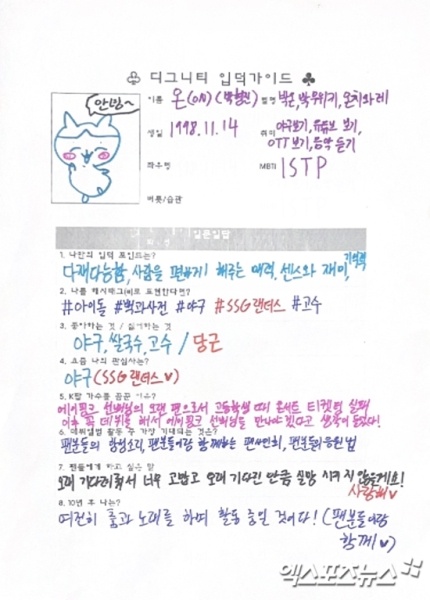 ♧ 디그니티 입덕가이드 ♣
안녕~
이름 온(ON) (박형빈) 별명 박온, 박무위키, 온치와레
생일 1998.11.14 취미 야구보기, 유튜브 보기,
OTT보기, 음악 듣기
좌우명 MBTI ISTP
버릇/습관
일문일답
1. 나만의 입덕 포인트는?
다재다능함, 사람을 편하게 해주는 매력, 센스와 재미, 기억력
2. 나를 해시태그(#)로 표현한다면?
#아이돌 #백과사전 #야구 #SSG랜더스 #고수
3. 좋아하는 것 / 싫어하는 것
야구, 쌀국수, 고수 / 당근
4. 요즘 나의 관심사는?
야구 (SSG 랜더스♥)
5. K팝 가수를 꿈꾼 이유?
에이핑크 선배님의 오랜 팬으로서 고등학생 때 콘서트 티켓팅 실패
이후 꼭 데뷔를 해서 에이핑크 선배님들 만나야겠다고 생각이 들었다!
6. 데뷔앨범 활동 중 가장 기대되는 것은?
팬분들의 함성소리, 팬분들이랑 함께하는 팬사인회, 팬분들의 응원법
7. 팬들에게 하고 싶은 말
오래 기다려줘서 너무 고맙고 오래 기다린 만큼 실망 시키지 않을게요!
사랑해♥
8. 10년 후 나는?
여전히 춤과 노래를 하며 활동 중일 것이다! (팬분들이랑
함께♥)
엑스포츠뉴스